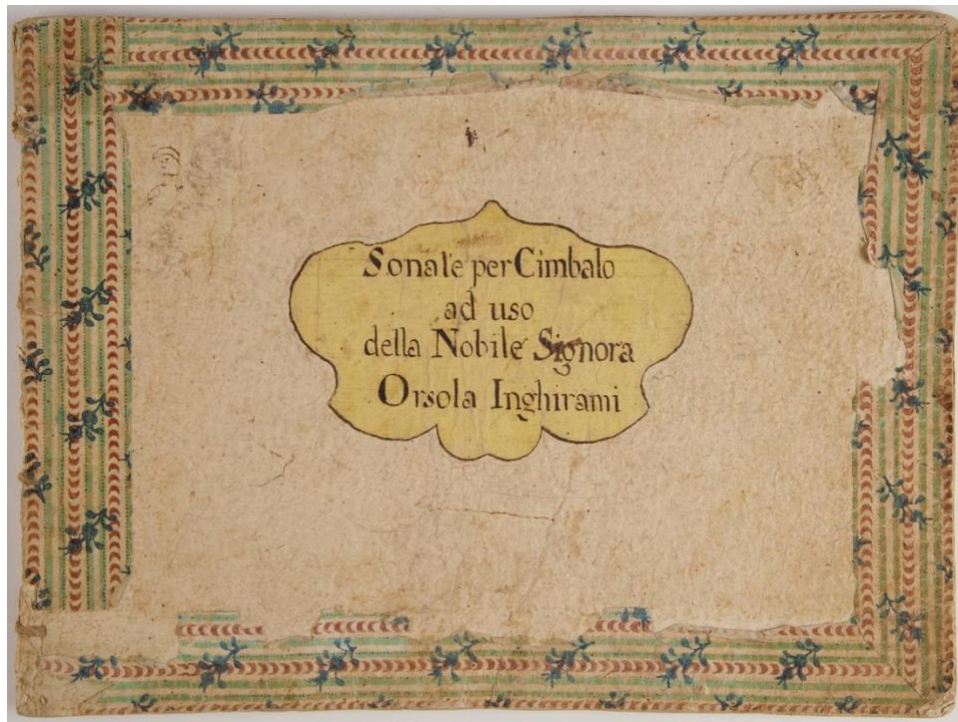 Sonate per Cimbalo
ad uso
della Nobile Signora
Orsola Inghirami